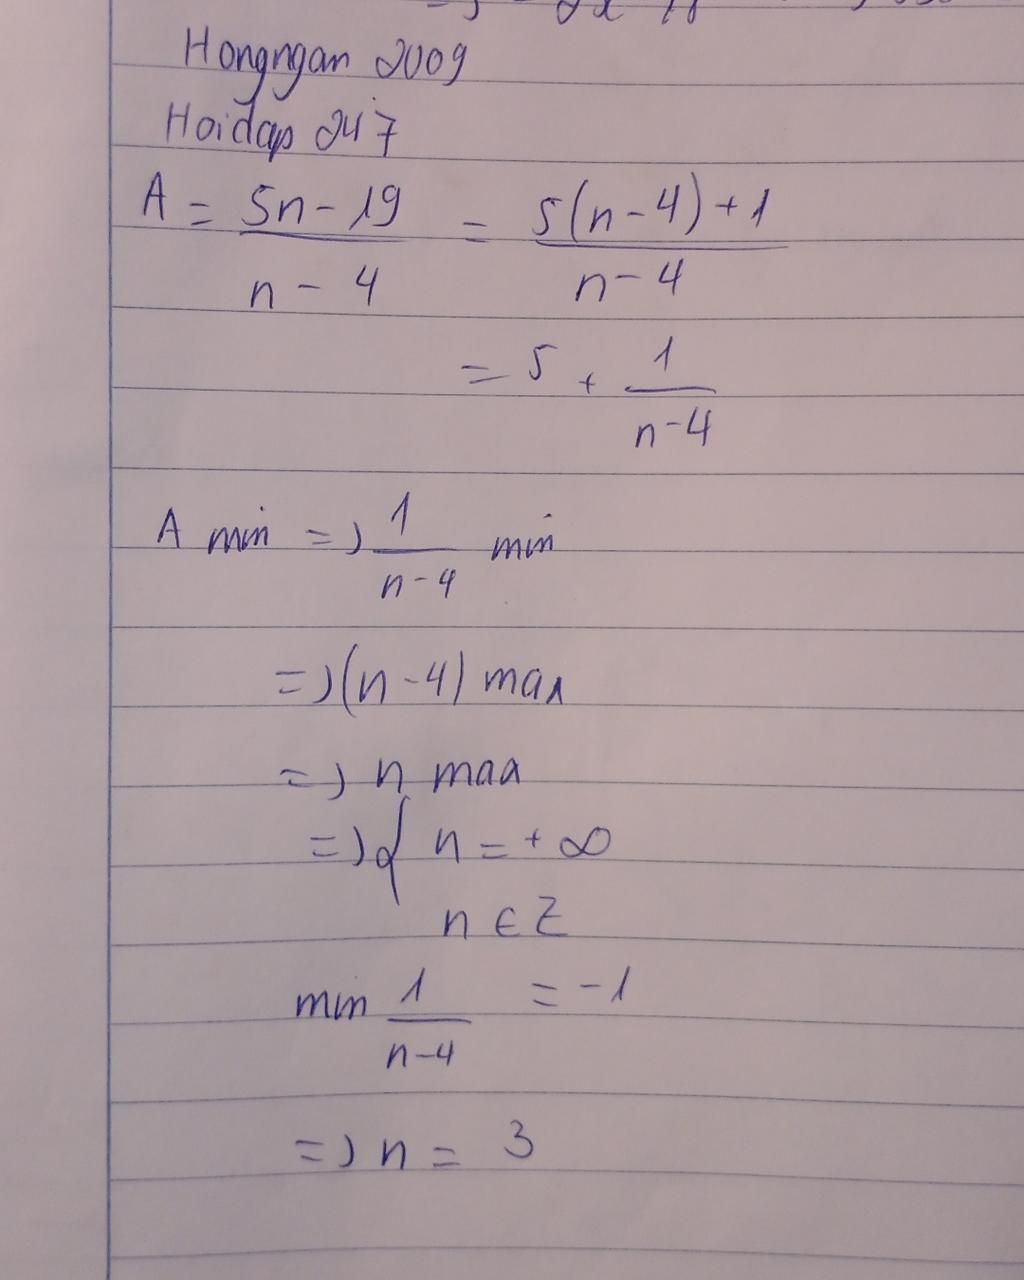 Hongngan 2009
Hoidap 247
A = 5n - 19 / n - 4 = 5(n - 4) + 1 / n - 4
= 5 + 1 / n - 4
A min => 1 / n - 4 min
=> (n - 4) max
=> n max
=> { n = + ∞
n ∈ Z
min 1 / n - 4 = -1
=> n = 3